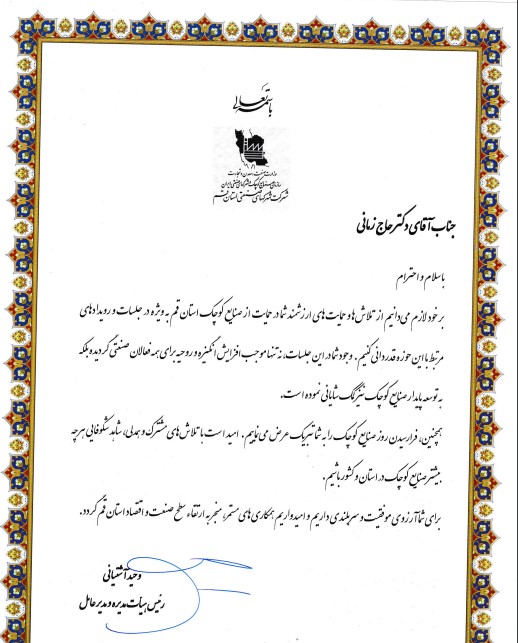 باسمه تعالی
وزارت صنعت، معدن و تجارت
سازمان صنایع کوچک و شهرکهای صنعتی ایران
شرکت شهرکهای صنعتی استان قم
جناب آقای دکتر حاج زمانی
با سلام و احترام
بر خود لازم می‌دانیم از تلاش‌ها و حمایت‌های ارزشمند شما در حمایت از صنایع کوچک استان قم به ویژه در جلسات و رویدادهای
مرتبط با این حوزه قدردانی کنیم. وجود شما در این جلسات، نه تنها موجب افزایش انگیزه و روحیه برای همه فعالان صنعتی گردیده بلکه
به توسعه پایدار صنایع کوچک نیز کمک شایانی نموده است.
همچنین، فرارسیدن روز صنایع کوچک را به شما تبریک عرض می‌نماییم. امید است با تلاش‌های مشترک و همدلی، شاهد شکوفایی هرچه
بیشتر صنایع کوچک در استان و کشور باشیم.
برای شما آرزوی موفقیت و سربلندی داریم و امیدواریم همکاری‌های مستمر، منجر به ارتقاء سطح صنعت و اقتصاد استان قم گردد.
وحید آشتیانی
رئیس هیات مدیره و مدیرعامل